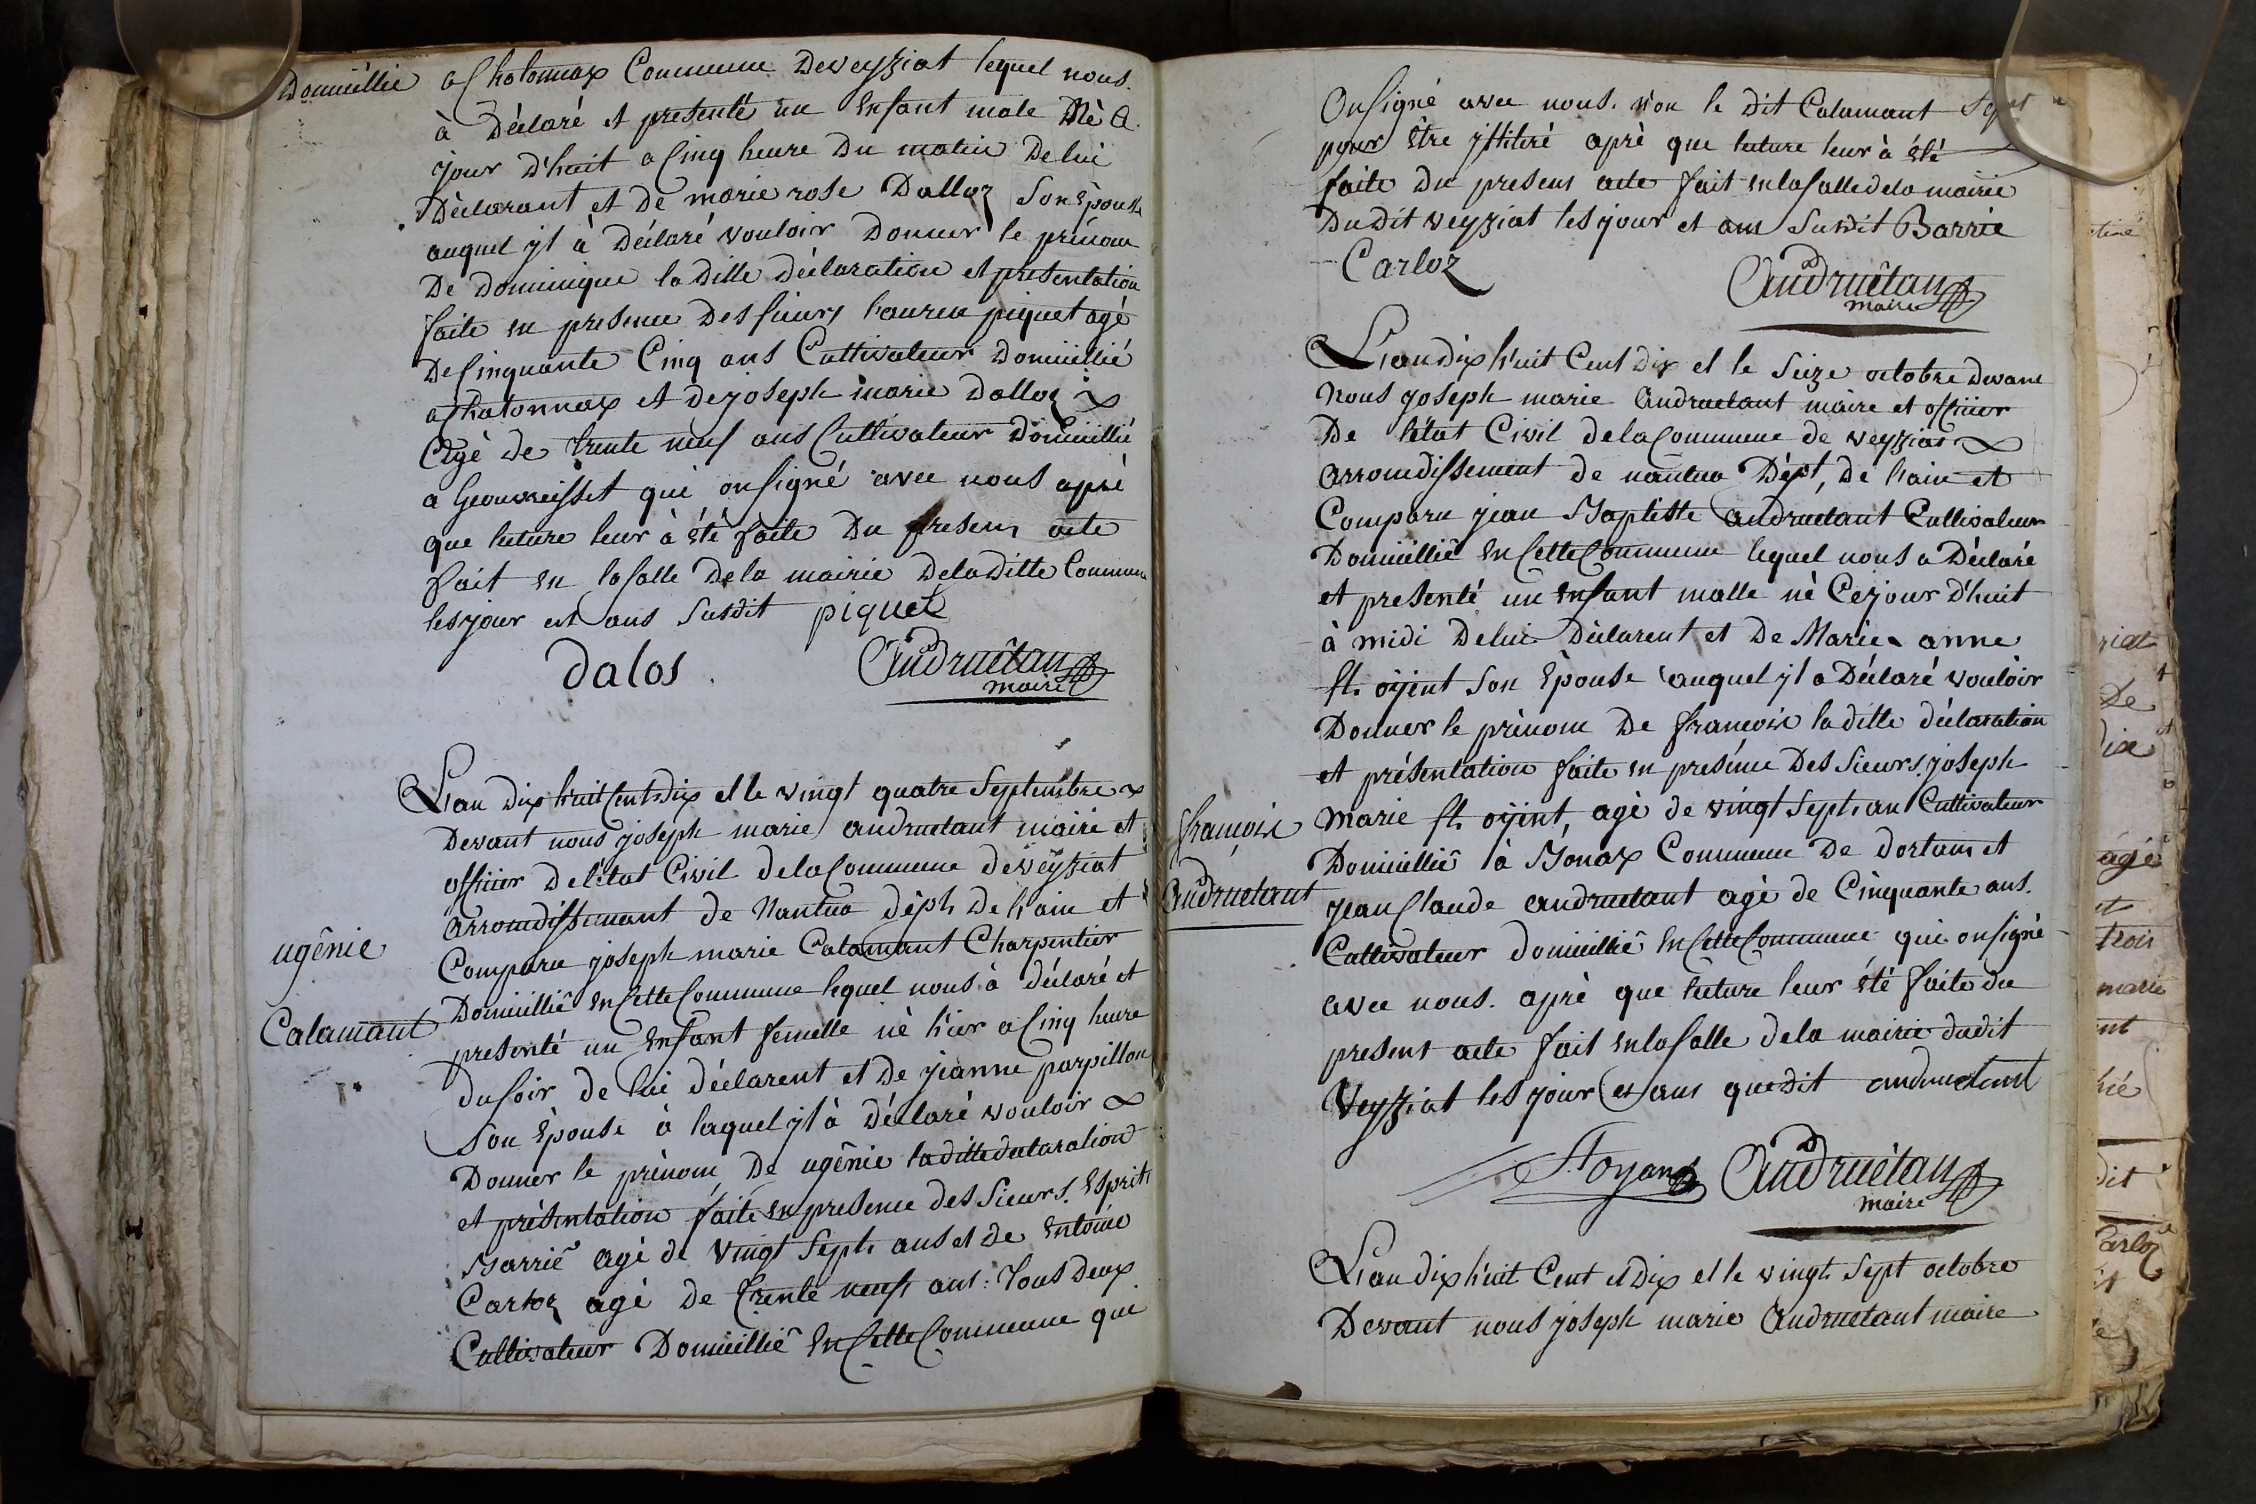 Domicillié a Chatonnax Commune Deveyziat lequel nous.
à Déclaré et presenté un Enfant male Né a
jour d'huit a Cinq heure Du matin De lui
Déclarant et de marie rose Dalloz Son Epouse
auquel jl à Déclaré vouloir Donner le prénom
De Dominique la ditte déclaration et presentation
faite en presence Des sieurs laurent piquet agé
De Cinquante Cinq ans Cultivateur Domicillié
a Chatonnax et de joseph marie dalloz
agé de trente neuf ans Cultivateur Domicillié
a Geovreisset qui on signé avec nous aprè
que lecture leur à été faite Du presens acte
fait en la salle Dela mairie Deladitte Commune
les jour et ans Susdit piquet
dalos Andruétan
maire
L'an Dix huit Cent Dix et le vingt quatre Septembre
Devant nous joseph marie andruetant maire et
officier Del'état Civil dela Commune deveyziat
arroundissemant de Nantua dépt. De l'ain et
Comparu joseph marie Calamant Charpentier
Domicillié en Cette Commune lequel nous à déclaré et
presenté un enfant femelle né h'ier a Cinq heure
du soir de lui déclarent et De jeanne parpillon
Son Epouse à laquel jl à Déclaré vouloir
Donner le prénom De ugênie la ditte declaration
et présentation faite en presence des Sieurs. Esprit
Barrié agé de vingt Sept ans et de entoine
Carloz agé de trente neuf ans: Tous Deux
Cultivateur Domicillié En Cette Commune qui
ugênie
Calamant
On Signé avec nous. n'on le dit Calamant
pour être jllitéré aprè que lecture leur à été
faite Du presens acte fait en la salle dela mairie
Du Dit veyziat les jour et ans Susdit Barrie
Carloz Andruétan
maire
L'an dix h'uit Cent Dix et le Seize octobre devant
Nous joseph marie andruetant maire et officier
De l'état Civil dela Commune de veyziat
arroundissement de nantua Dépt, De l'ain et
Comparu jean Baptiste andruetant Cultivateur
Domicillié en Cette Commune lequel nous a Déclaré
et presenté un enfant malle né Cejour d'huit
à midi De lui Déclarent et De Marie anne
st. oÿent son Epouse auquel jl a Déclaré vouloir
Donner le prénom De francois la ditte déclaration
et présentation faite en presence Des Sieurs. joseph
Marie st. oyent, agé de vingt Sept. an Cultivateur
Domicillié à Bonax Commune De dortans et
jean Claude andruetant agé de Cinquante ans.
Cultivateur domicillié En Cette Commune qui on signé
avec nous. aprè que lecture leur été faite du
present acte fait en la Salle dela mairie dudit
Veyziat les jour et ans que dit andruetant
St oyant Andruétan
maire
francois
andruetant
L'an dix h'uit Cent et Dix et le vingt. Sept octobre
Devant nous joseph marie andruetant maire